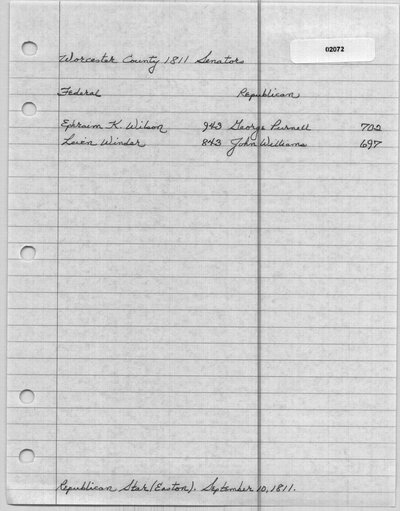 02072
Worcester County 1811 Senators
Federal Republican
Ephraim K. Wilson 943 George Purnell 702
Levin Winder 843 John Williams 697
Republican Star (Easton). September 10, 1811.